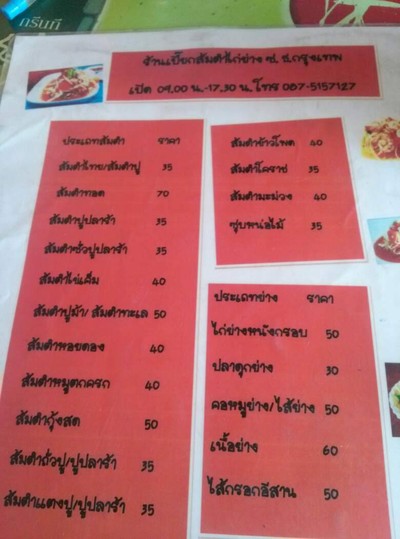 กรีนที
ร้านเปี๊ยกส้มตำไก่ย่าง ซ.ช.กรุงเทพ
เปิด 09.00 น.-17.30 น. โทร 087-5157127
ประเภทส้มตำ ราคา
ส้มตำไทย/ส้มตำปู 35
ส้มตำทอด 70
ส้มตำปูปลาร้า 35
ส้มตำซั่วปูปลาร้า 35
ส้มตำไข่เค็ม 40
ส้มตำปูม้า/ ส้มตำทะเล 50
ส้มตำหอยดอง 40
ส้มตำหมูตกครก 40
ส้มตำกุ้งสด 50
ส้มตำถั่วปู/ปูปลาร้า 35
ส้มตำแตงปู/ปูปลาร้า 35
ส้มตำข้าวโพด 40
ส้มตำโคราช 35
ส้มตำมะม่วง 40
ซุบหน่อไม้ 35
ประเภทย่าง ราคา
ไก่ย่างหนังกรอบ 50
ปลาดุกย่าง 30
คอหมูย่าง/ไส้ย่าง 50
เนื้อย่าง 60
ไส้กรอกอีสาน 50